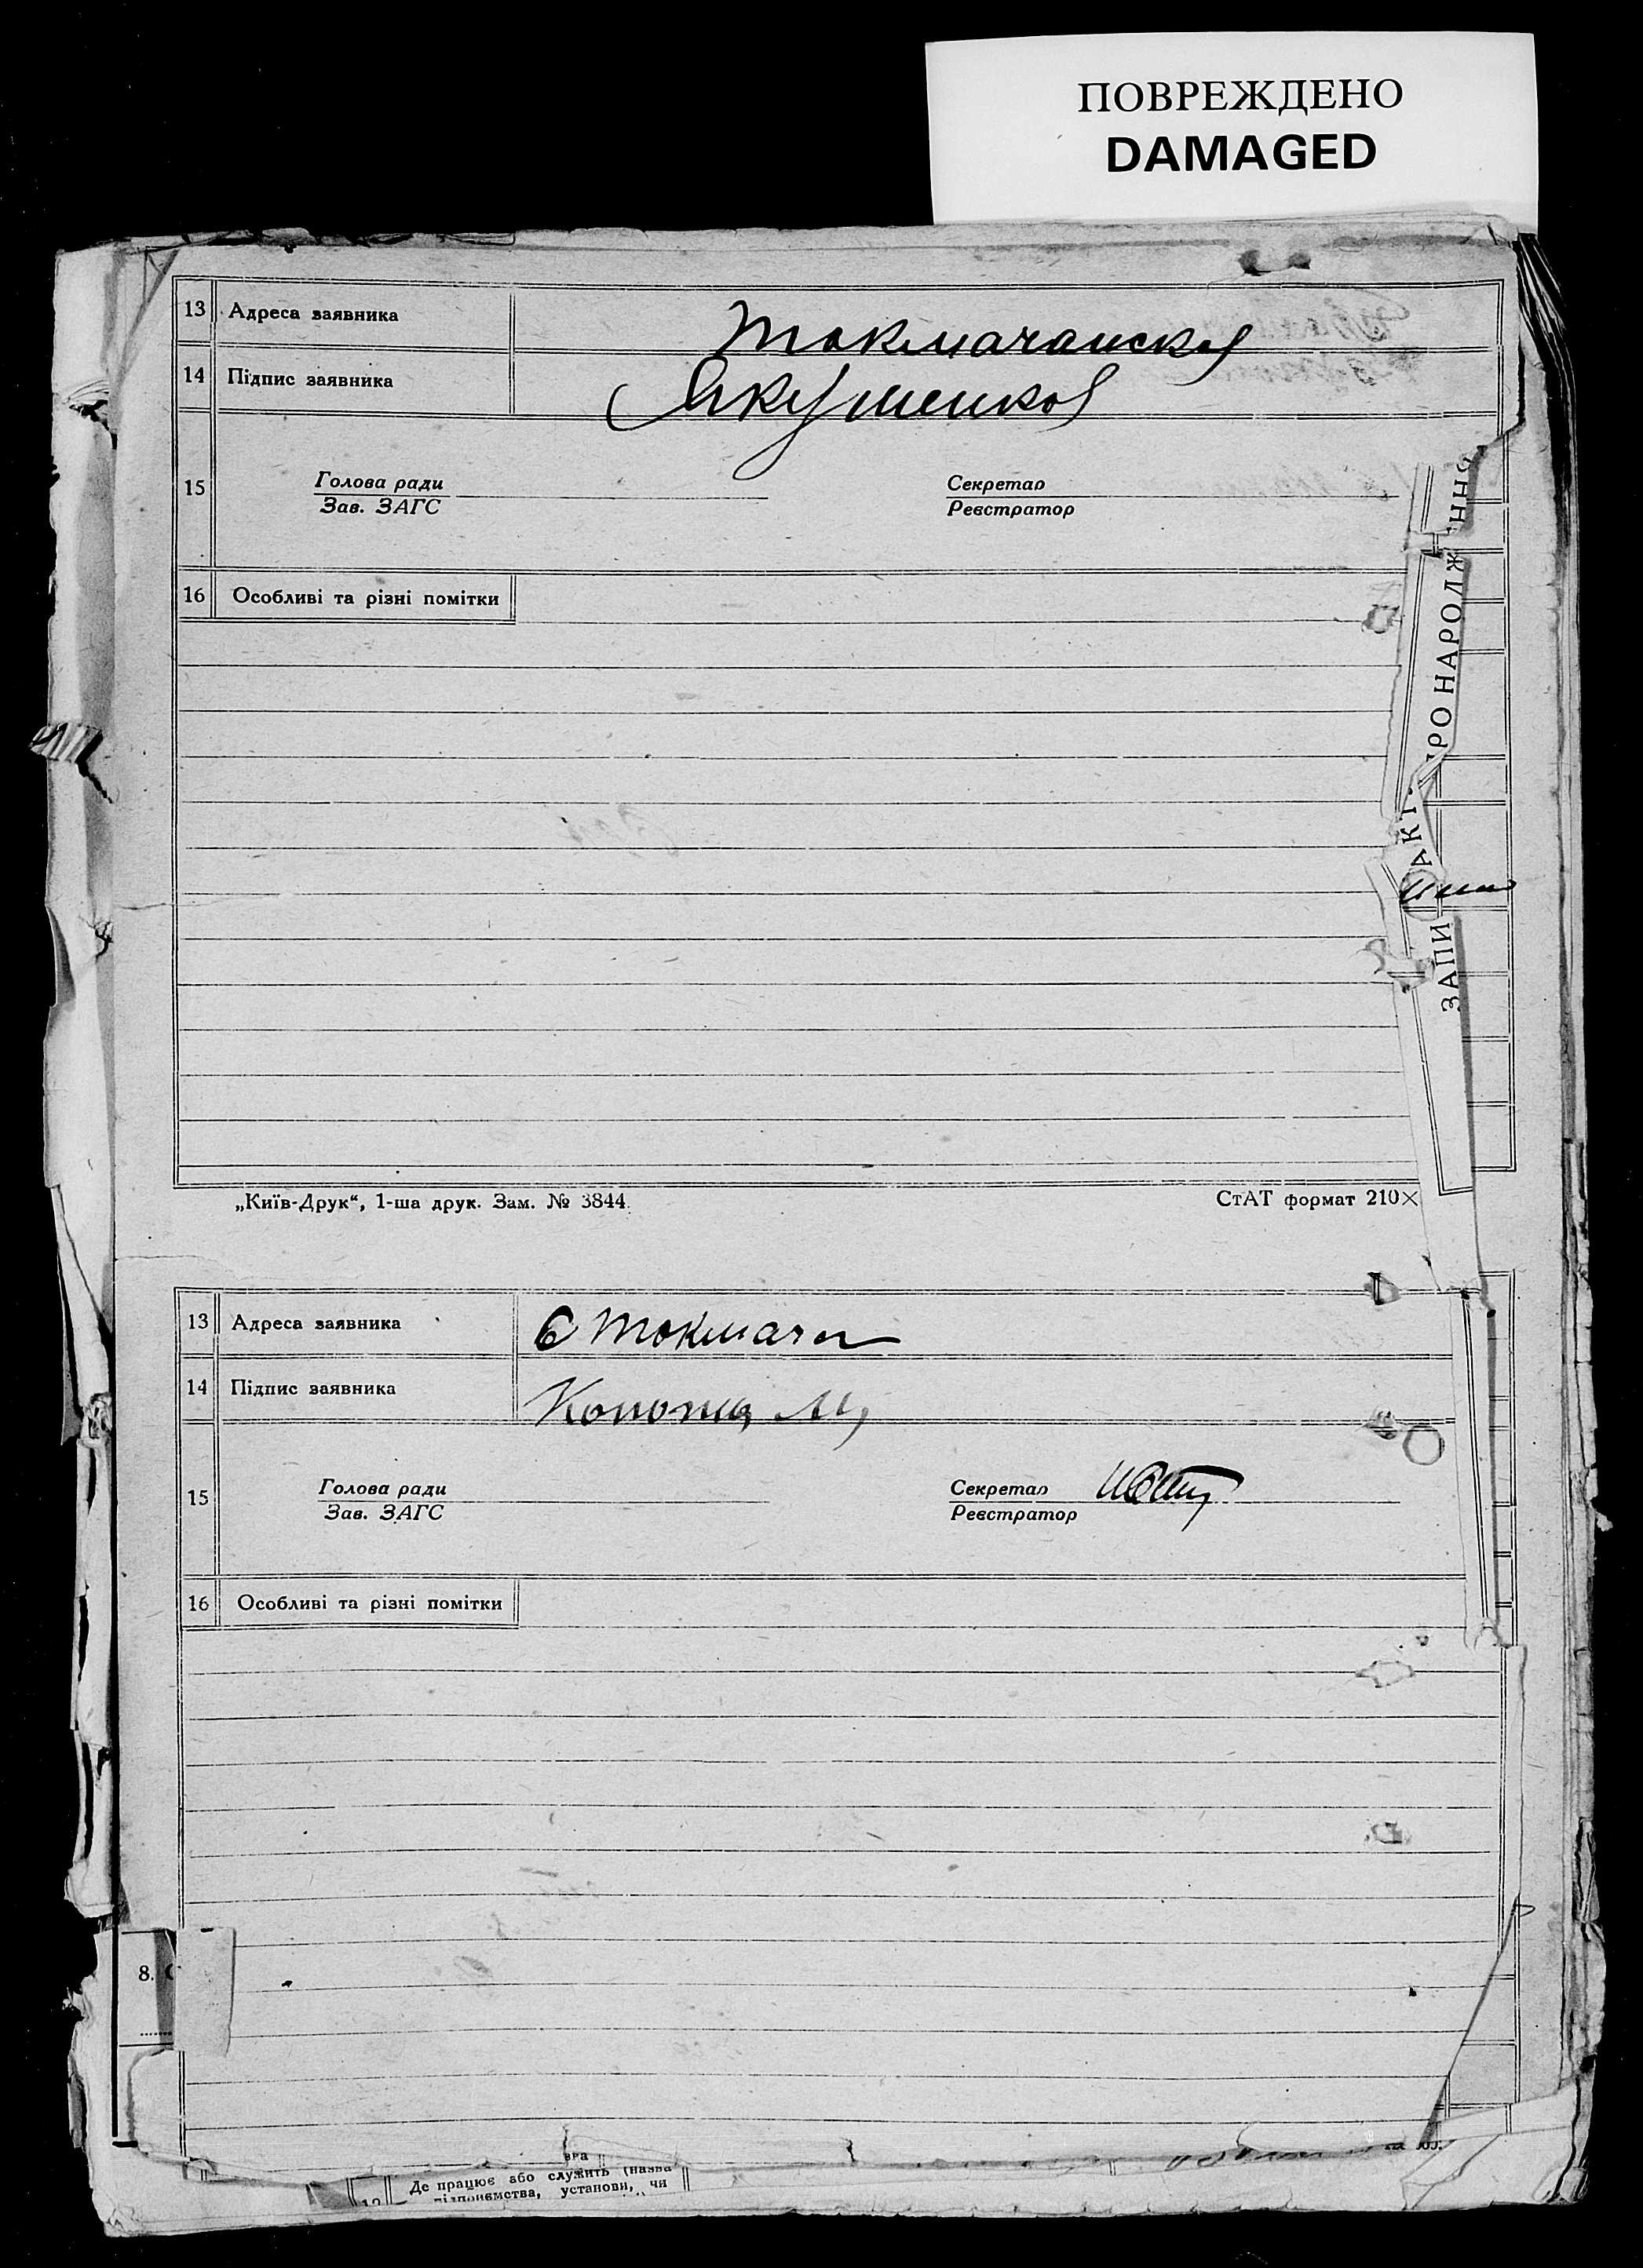 ПОВРЕЖДЕНО
DAMAGED
13 Адреса заявника
14 Підпис заявника Якушенко
15 Голова ради Секретар
Зав. ЗАГС Реєстратор
16 Особливі та різні помітки
ЗАПИ АКТ РО НАРОДЖ ННЯ
„Київ-Друк“, 1-ша друк. Зам. № 3844. СтАТ формат 210×
13 Адреса заявника С Токмачи
14 Підпис заявника
15 Голова ради Секретар
Зав. ЗАГС Реєстратор
16 Особливі та різні помітки
8.
Де працює або служить (назва
підприємства, установи, чи